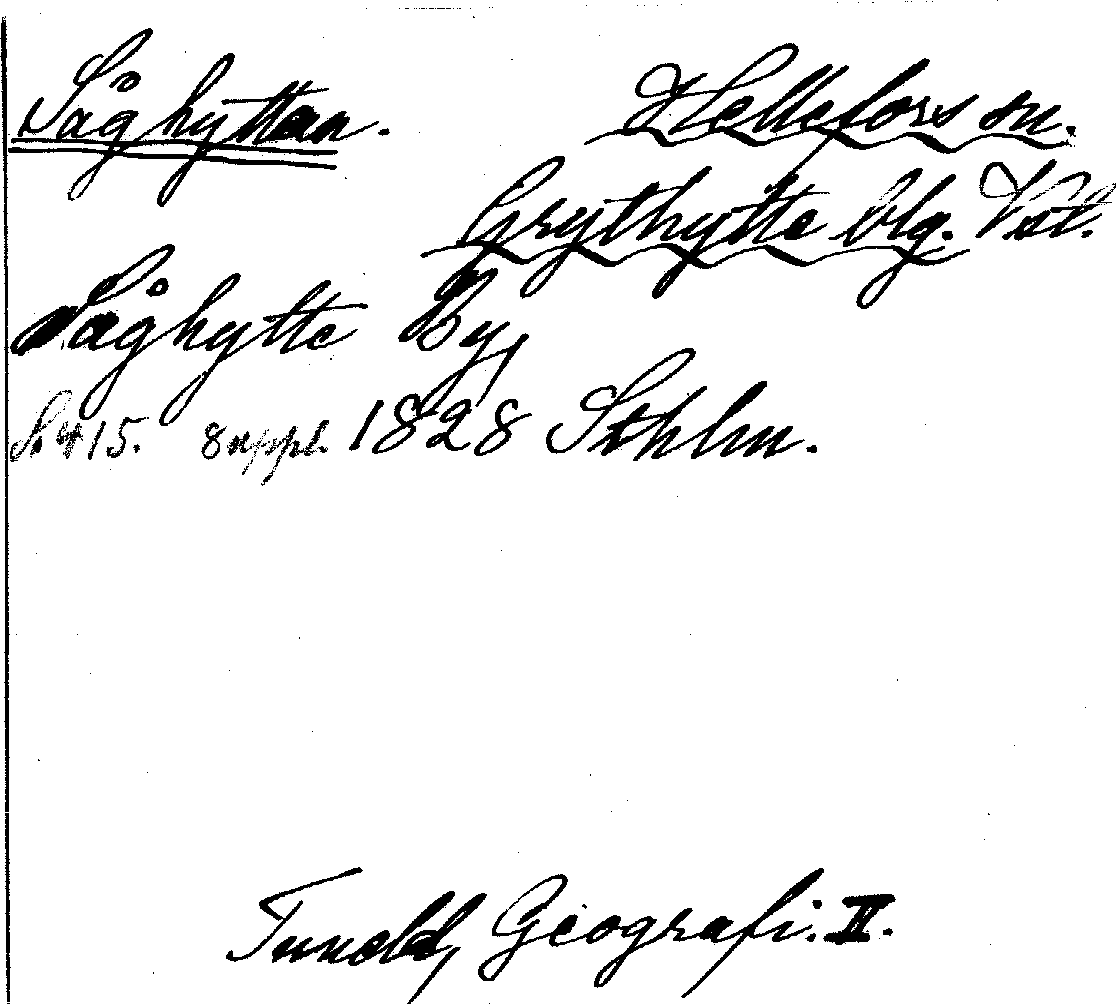 Såghyttan. Hellefors sn.
Grythytte blg. Vstl.
Såghytte By,
S. 415. 8 uppl. 1828 Sthlm.
Tuneld, Geografi. II.